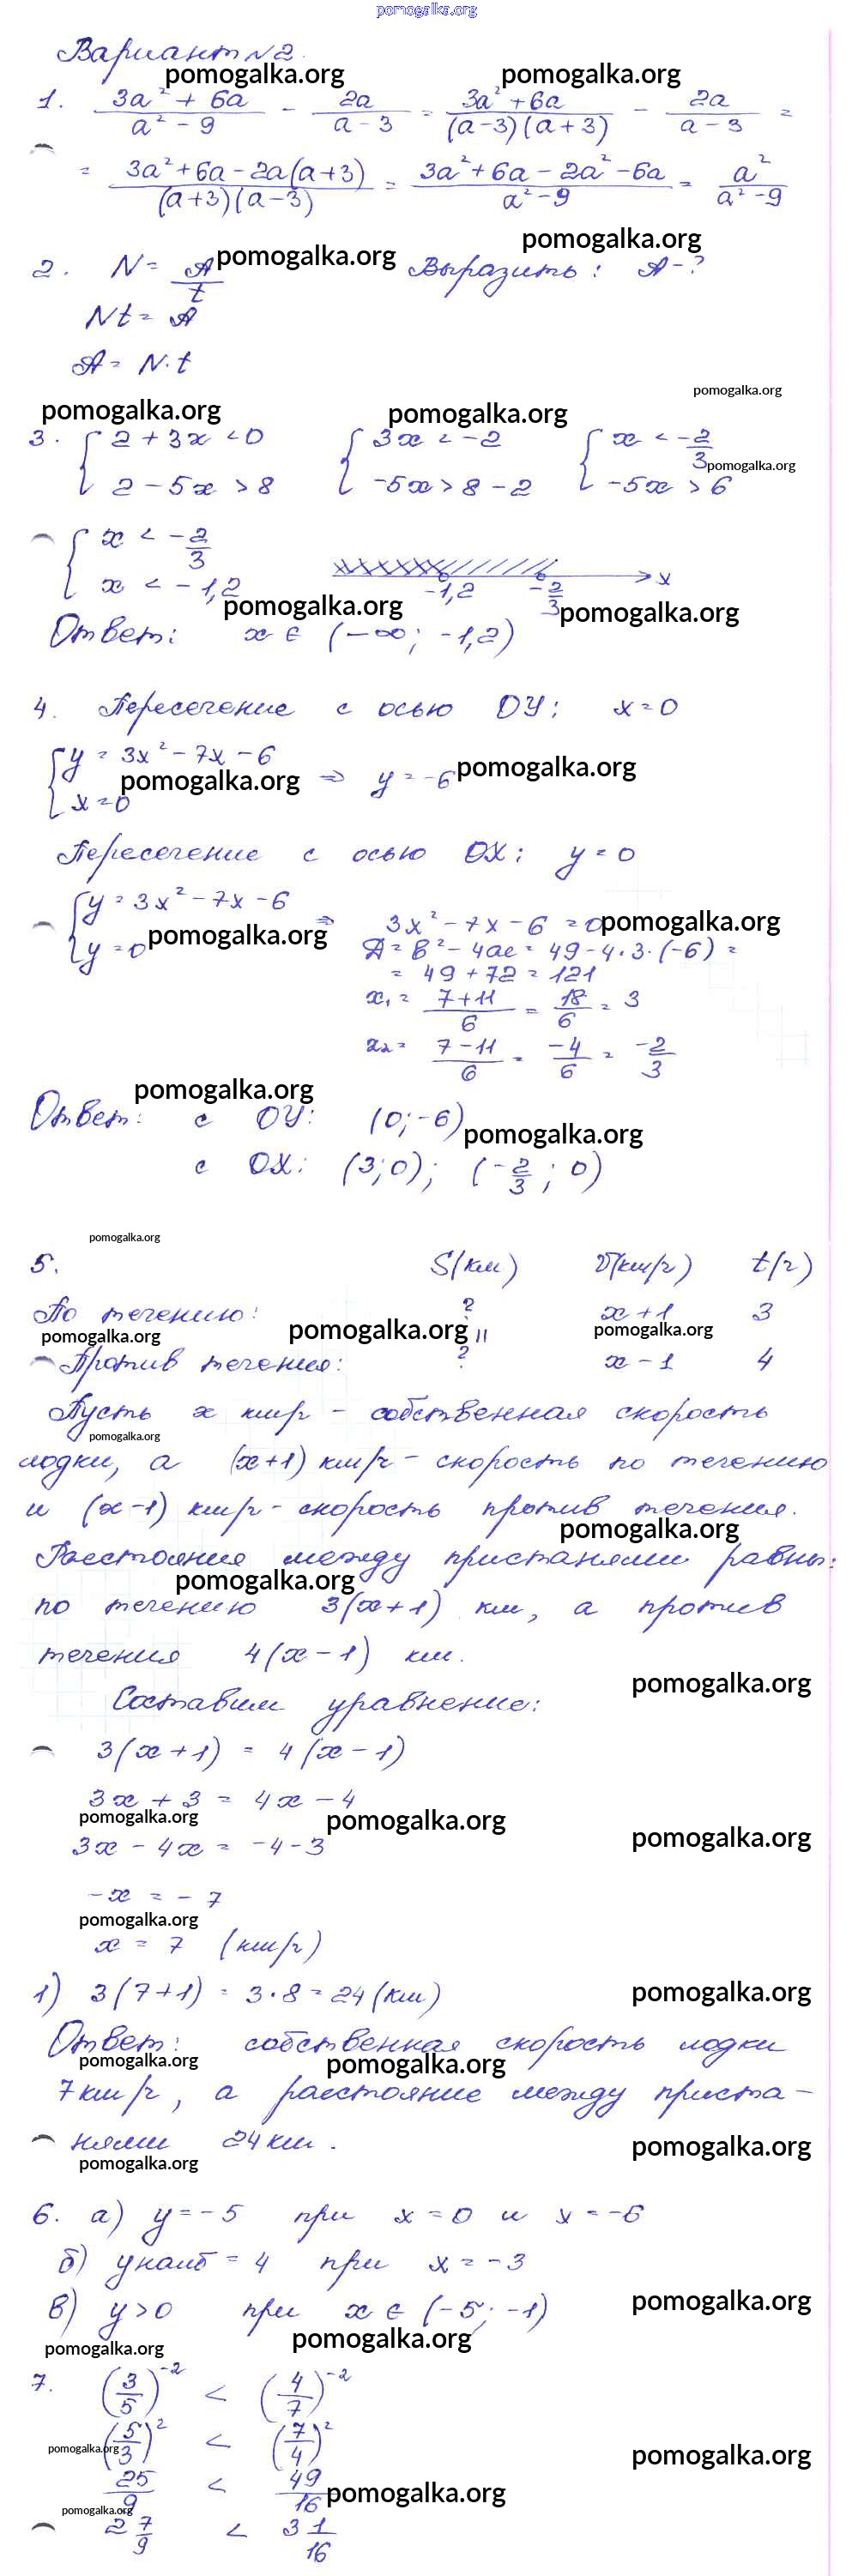 pomogalka.org
Вариант №2.
pomogalka.org pomogalka.org
1. (3a² + 6a)/(a² - 9) - 2a/(a - 3) = (3a² + 6a)/((a-3)(a+3)) - 2a/(a - 3) =
= (3a² + 6a - 2a(a+3))/((a+3)(a-3)) = (3a² + 6a - 2a² - 6a)/(a² - 9) = a²/(a² - 9)
pomogalka.org
pomogalka.org
2. N = A/t Выразить: A - ?
Nt = A
A = N·t
pomogalka.org
pomogalka.org pomogalka.org
3. { 2 + 3x < 0 { 3x < -2 { x < -2/3
2 - 5x > 8 -5x > 8 - 2 -5x > 6
pomogalka.org
{ x < -2/3
x < -1,2
-1,2 -2/3 x
pomogalka.org pomogalka.org
Ответ: x ∈ (-∞; -1,2)
4. Пересечение с осью OY: x = 0
{ y = 3x² - 7x - 6
x = 0 => y = -6
pomogalka.org pomogalka.org
Пересечение с осью OX: y = 0
{ y = 3x² - 7x - 6
y = 0 => 3x² - 7x - 6 = 0
pomogalka.org pomogalka.org
Д = в² - 4ac = 49 - 4·3·(-6) =
= 49 + 72 = 121
x₁ = (7+11)/6 = 18/6 = 3
x₂ = (7-11)/6 = -4/6 = -2/3
pomogalka.org
Ответ: с OY: (0; -6)
pomogalka.org
с OX: (3; 0); (-2/3; 0)
pomogalka.org
5. S(км) V(км/ч) t(ч)
По течению: ? x + 1 3
pomogalka.org pomogalka.org || pomogalka.org
Против течения: ? x - 1 4
Пусть x км/ч - собственная скорость
pomogalka.org
лодки, а (x+1) км/ч - скорость по течению
и (x-1) км/ч - скорость против течения.
pomogalka.org
Расстояния между пристанями равны:
pomogalka.org
по течению 3(x+1) км, а против
течения 4(x-1) км.
pomogalka.org
Составим уравнение:
3(x+1) = 4(x-1)
3x + 3 = 4x - 4
pomogalka.org pomogalka.org pomogalka.org
3x - 4x = -4-3
-x = -7
pomogalka.org
x = 7 (км/ч)
1) 3(7+1) = 3·8 = 24 (км)
pomogalka.org
Ответ: собственная скорость лодки
pomogalka.org pomogalka.org
7 км/ч, а расстояние между приста-
нями 24 км.
pomogalka.org
pomogalka.org
6. а) y = -5 при x = 0 и x = -6
б) y наиб = 4 при x = -3
pomogalka.org
в) y > 0 при x ∈ (-5; -1)
pomogalka.org pomogalka.org
7. (3/5)⁻² < (4/7)⁻²
(5/3)² < (7/4)²
pomogalka.org pomogalka.org
25/9 < 49/16
pomogalka.org
pomogalka.org
2 7/9 < 3 1/16